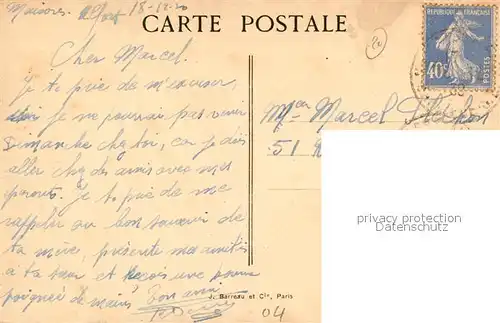 Maisons Alfort 18-12-30
CARTE POSTALE
REPUBLIQUE FRANÇAISE
40c
POSTES
Cher Marcel.
Je te prie de m'excuser,
je ne pourrai pas venir
Dimanche chez toi, car je dois
aller chez des amis avec mes
parents. Je te prie de me
rappeler au bon souvenir de
ta mère, présente mes amitiés
à ta sœur et reçois une bonne
poignée de mains Ton ami
Mr Marcel
51
privacy protection
J. Barreau et Cie, Paris
04